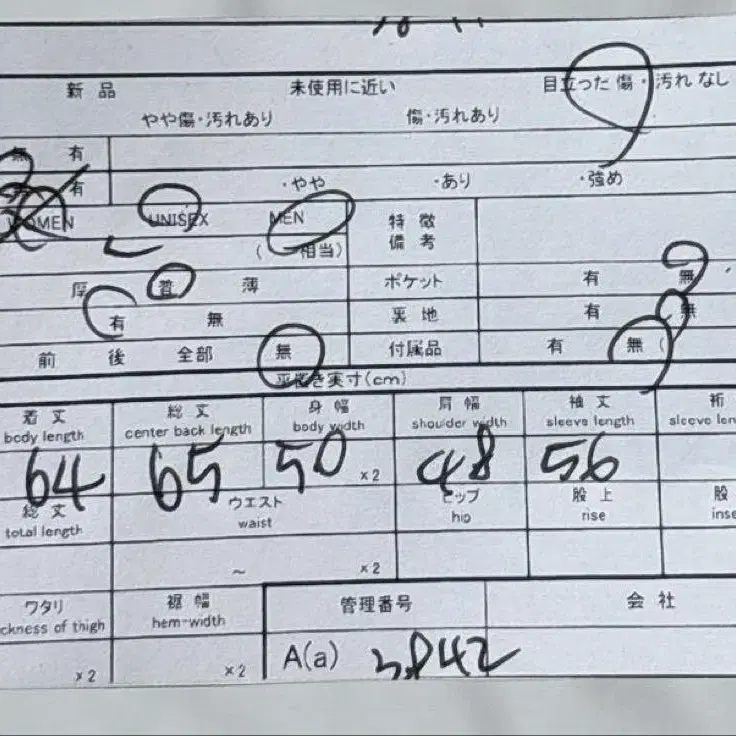 新品 未使用に近い 目立った傷・汚れなし
やや傷・汚れあり 傷・汚れあり
無 有
有 ・やや ・あり ・強め
WOMEN UNISEX MEN 特徴
( 相当) 備考
厚 普 薄 ポケット 有 無
有 無 裏地 有 無
前 後 全部 無 付属品 有 無 (
平置き実寸(cm)
着丈 総丈 身幅 肩幅 袖丈 裄
body length center back length body width shoulder width sleeve length sleeve len
64 65 50 ×2 48 56
総丈 ウエスト ヒップ 股上 股
total length waist hip rise inse
~ ×2
ワタリ 裾幅 管理番号 会社
ckness of thigh hem-width
×2 ×2 A(a)